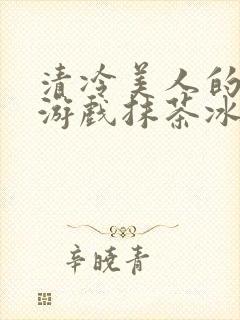 清冷美人的
游戏抹茶冰
辛晓青